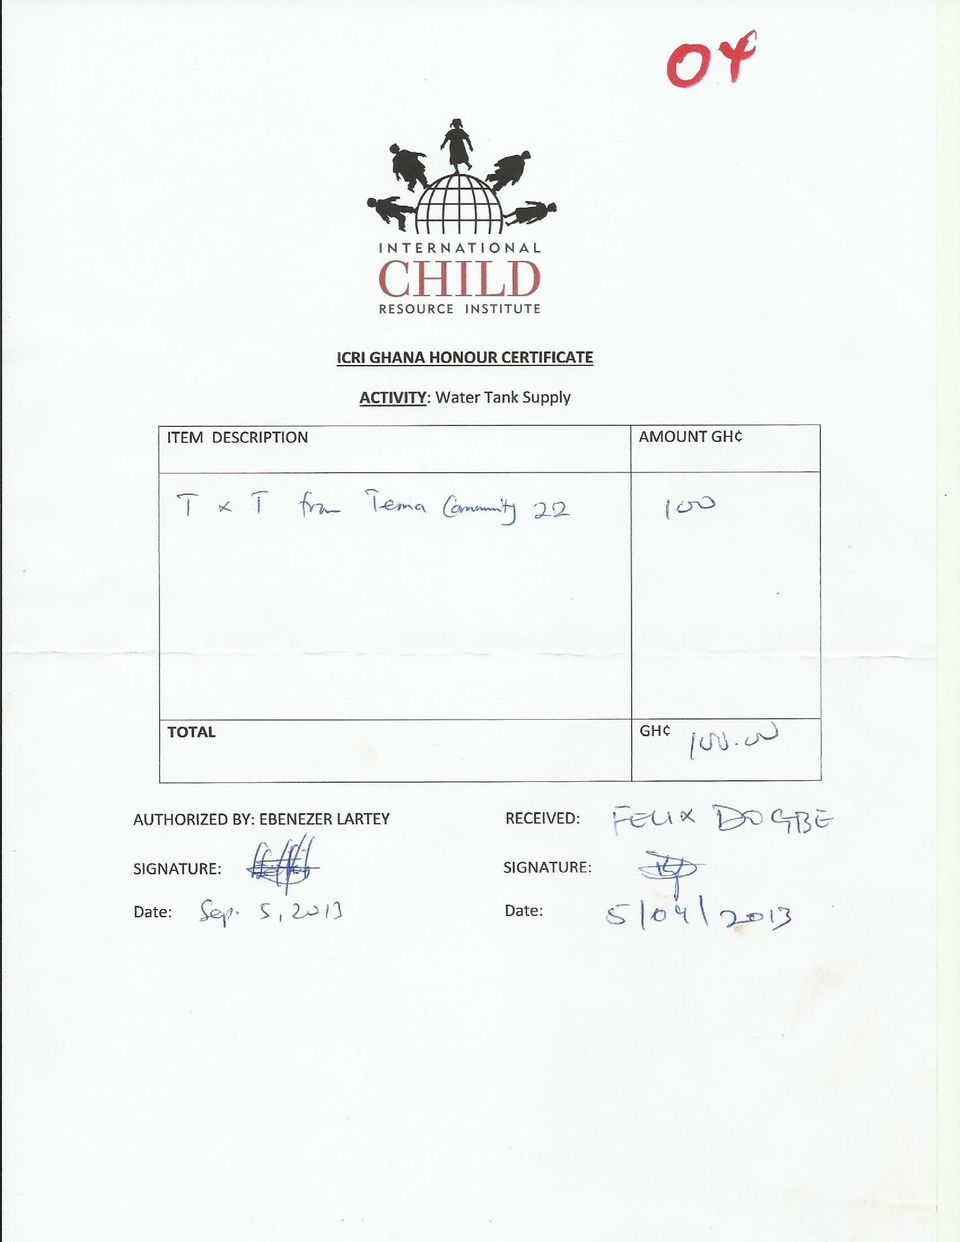 04
INTERNATIONAL
CHILD
RESOURCE INSTITUTE
ICRI GHANA HONOUR CERTIFICATE
ACTIVITY: Water Tank Supply
ITEM DESCRIPTION AMOUNT GH¢
T x T from Tema Community 22 100
TOTAL GH¢ 100.00
AUTHORIZED BY: EBENEZER LARTEY RECEIVED: FELIX DOGBE
SIGNATURE: SIGNATURE:
Date: Sep. 5, 2013 Date: 5/04/2013